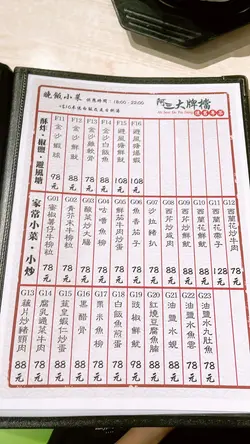 晚飯小菜 供應時間：18:00 - 22:00
大牌檔
酥炸・椒鹽・避風塘
F11 金沙蝦球 78元
F12 金沙鮮魷 78元
F13 金沙雞軟骨 78元
F14 金沙白飯魚 78元
F15 避風塘鮮魷 88元
F16 避風塘瀨尿蝦 108元
家常小菜・小炒
G01 蜜椒薯仔牛柳粒 78元
G02 青芥末牛柳粒 78元
G03 酸菜炒大腸 78元
G04 咕嚕魚柳 78元
G05 鮮茄牛肉炒蛋 78元
G06 魚香茄子 78元
G07 沙爹豬扒 78元
G08 西芹炒咸肉 78元
G09 西芹炒鮮魷 88元
G10 西蘭花鮮魷 88元
G11 西蘭花帶子 128元
G12 西蘭花炒牛肉 78元
G13 蓮藕片炒豬頸肉 88元
G14 腐乳通菜牛肉 78元
G15 韮皇蝦仁炒蛋 88元
G16 黑醋骨 88元
G17 粟米魚柳 78元
G18 白飯魚煎蛋 78元
G19 豉椒鮮魷 78元
G20 紅燒豆腐魚腩 88元
G21 油鹽水蜆 88元
G22 油鹽水魚雲 78元
G23 油鹽水九肚魚 78元